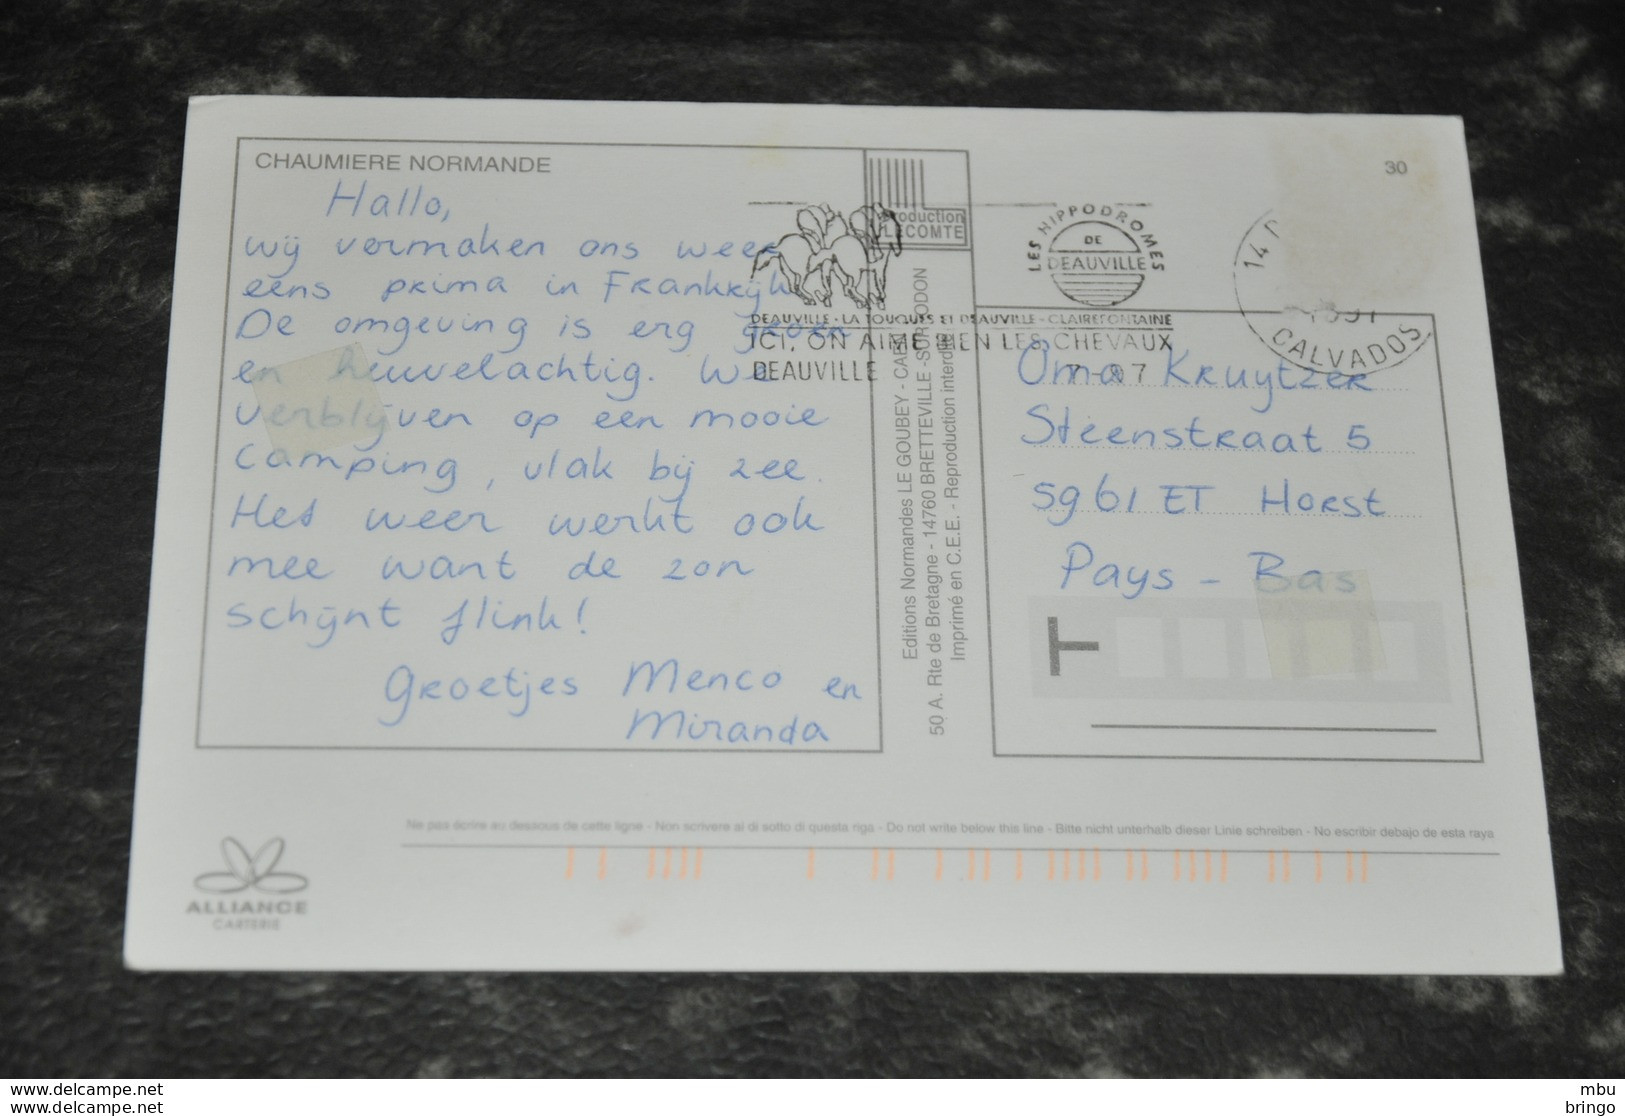 CHAUMIERE NORMANDE
Hallo,
wij vermaken ons weer
eens prima in Frankrijk
De omgeving is erg groen
en heuvelachtig. We
verblijven op een mooie
camping, vlak bij zee.
Het weer werkt ook
mee want de zon
schijnt flink!
Groetjes Menco en
Miranda
Production
LECOMTE
Editions Normandes LE GOUBEY - CAEN
50 A. Rte de Bretagne - 14760 BRETTEVILLE-SUR-ODON
Imprimé en C.E.E. - Reproduction interdite
30
LES HIPPODROMES
DE
DEAUVILLE
DEAUVILLE - LA TOUQUES ET DEAUVILLE - CLAIREFONTAINE
ICI, ON AIME BIEN LES CHEVAUX
DEAUVILLE
14
CALVADOS
Oma Kruytzer
Steenstraat 5
5961 ET Horst
Pays - Bas
T
Ne pas écrire au dessous de cette ligne - Non scrivere al di sotto di questa riga - Do not write below this line - Bitte nicht unterhalb dieser Linie schreiben - No escribir debajo de esta raya
ALLIANCE
CARTERIE
www.delcampe.net
www.delcampe.net
mbu
bringo